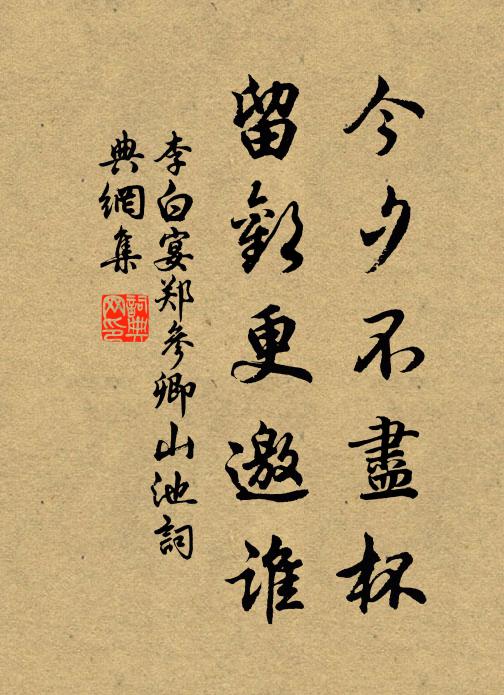 今夕不盡杯
留歡更邀誰
李白宴郑參卿山池詞
典網集
詞典网印